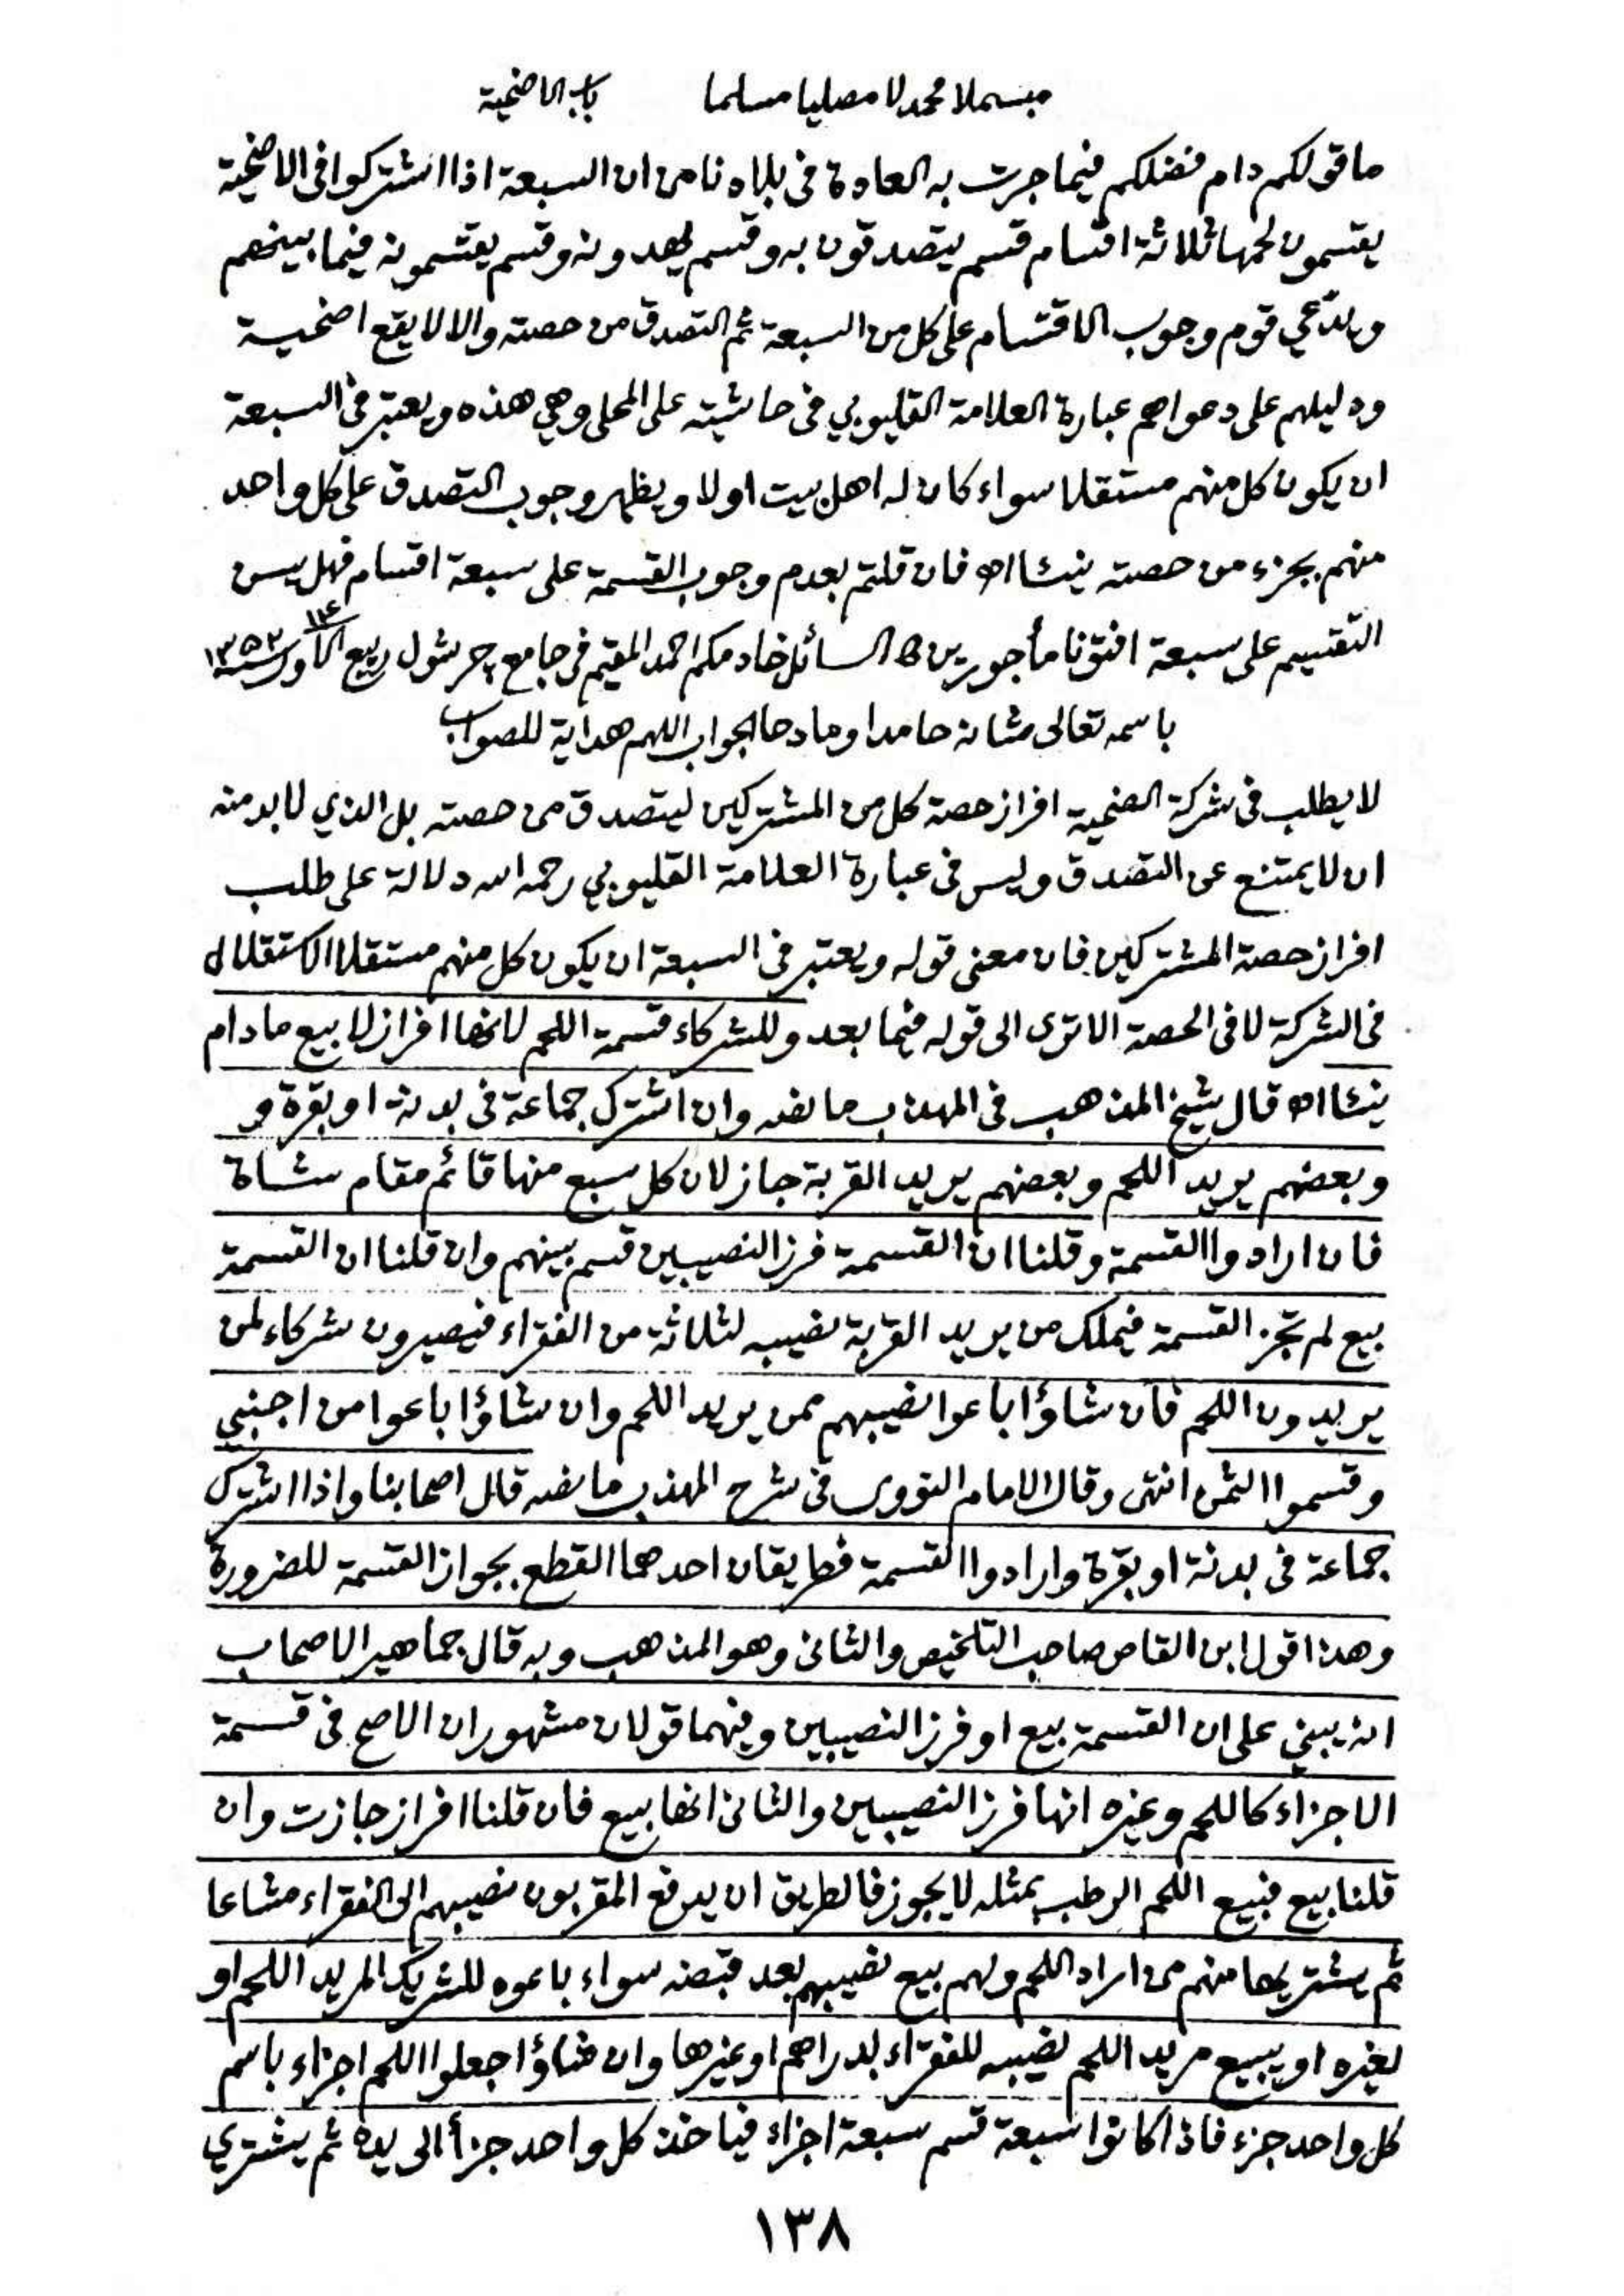 مبسملا محمدلا مصليا مسلما باب الاضحية
ما قولكم دام فضلكم فيما جرت به العادة فى بلادنا من ان السبعة اذا اشتركوا فى الاضحية
يقتسمون لحمها ثلاثة اقسام قسم يتصدقون به وقسم يهدونه وقسم يقتسمونه فيما بينهم
ويدّعي قوم وجوب الاقتسام على كل من السبعة ثم التصدق من حصته والا لا يقع اضحية
ودليلهم على دعواهم عبارة العلامة القليوبي فى حاشيته على المحلى وهي هذه ويعتبر فى السبعة
ان يكون كل منهم مستقلا سواء كان له اهل بيت او لا ويظهر وجوب التصدق على كل واحد
منهم بجزء من حصته نيئا اه فان قلتم بعدم وجوب القسمة على سبعة اقسام فهل يسن
التقسيم على سبعة افتونا مأجورين السائل خادمكم احمد المقيم فى جامع ربيع الاول ١٣٥٢
باسمه تعالى شانه حامدا ومادحا الجواب اللهم هداية للصواب
لا يطلب فى شركة الضحية افراز حصة كل من المشتركين ليتصدق من حصته بل الذي لا بد منه
ان لا يمتنع عن التصدق وليس فى عبارة العلامة القليوبي رحمه الله دلالة على طلب
افراز حصة المشتركين فان معنى قوله ويعتبر فى السبعة ان يكون كل منهم مستقلا الاستقلال
فى الشركة لا فى الحصة الا ترى الى قوله فيما بعد وللشركاء قسمة اللحم لانها افراز لا بيع ما دام
نيئا اه قال شيخ المذهب فى المهذب ما نصه وان اشترك جماعة فى بدنة او بقرة و
وبعضهم يريد اللحم وبعضهم يريد القربة جاز لان كل سبع منها قائم مقام شاة
فان ارادوا القسمة وقلنا ان القسمة فرز النصيبين قسم بينهم وان قلنا ان القسمة
بيع لم تجز القسمة فيملك من يريد القربة نصيبه لثلاثة من الفقراء فيصيرون شركاء لمن
يريدون اللحم فان شاؤا باعوا نصيبهم ممن يريد اللحم وان شاؤا باعوا من اجنبي
وقسموا الثمن انتهى وقال الامام النووى فى شرح المهذب ما نصه قال اصحابنا واذا اشترك
جماعة فى بدنة او بقرة وارادوا القسمة فطريقان احدهما القطع بجواز القسمة للضرورة
وهذا قول ابن القاص صاحب التلخيص والثانى وهو المذهب وبه قال جماهير الاصحاب
انه يبنى على ان القسمة بيع او فرز النصيبين وفيهما قولان مشهوران الاصح فى قسمة
الاجزاء كاللحم وغيره انها فرز النصيبين والثانى انها بيع فان قلنا افراز جازت وان
قلنا بيع فبيع اللحم الرطب بمثله لا يجوز فالطريق ان يدفع المقربون نصيبهم الى الفقراء مشاعا
ثم يشتريها منهم من اراد اللحم ولهم بيع نصيبهم بعد قبضه سواء باعوه للشريك المريد اللحم او
لغيره او يبيع مريد اللحم نصيبه للفقراء بدراهم او غيرها وان شاؤا جعلوا اللحم اجزاء باسم
كل واحد جزء فاذا كانوا سبعة قسم سبعة اجزاء فياخذ كل واحد جزأ الى يده ثم يشتري
١٣٨